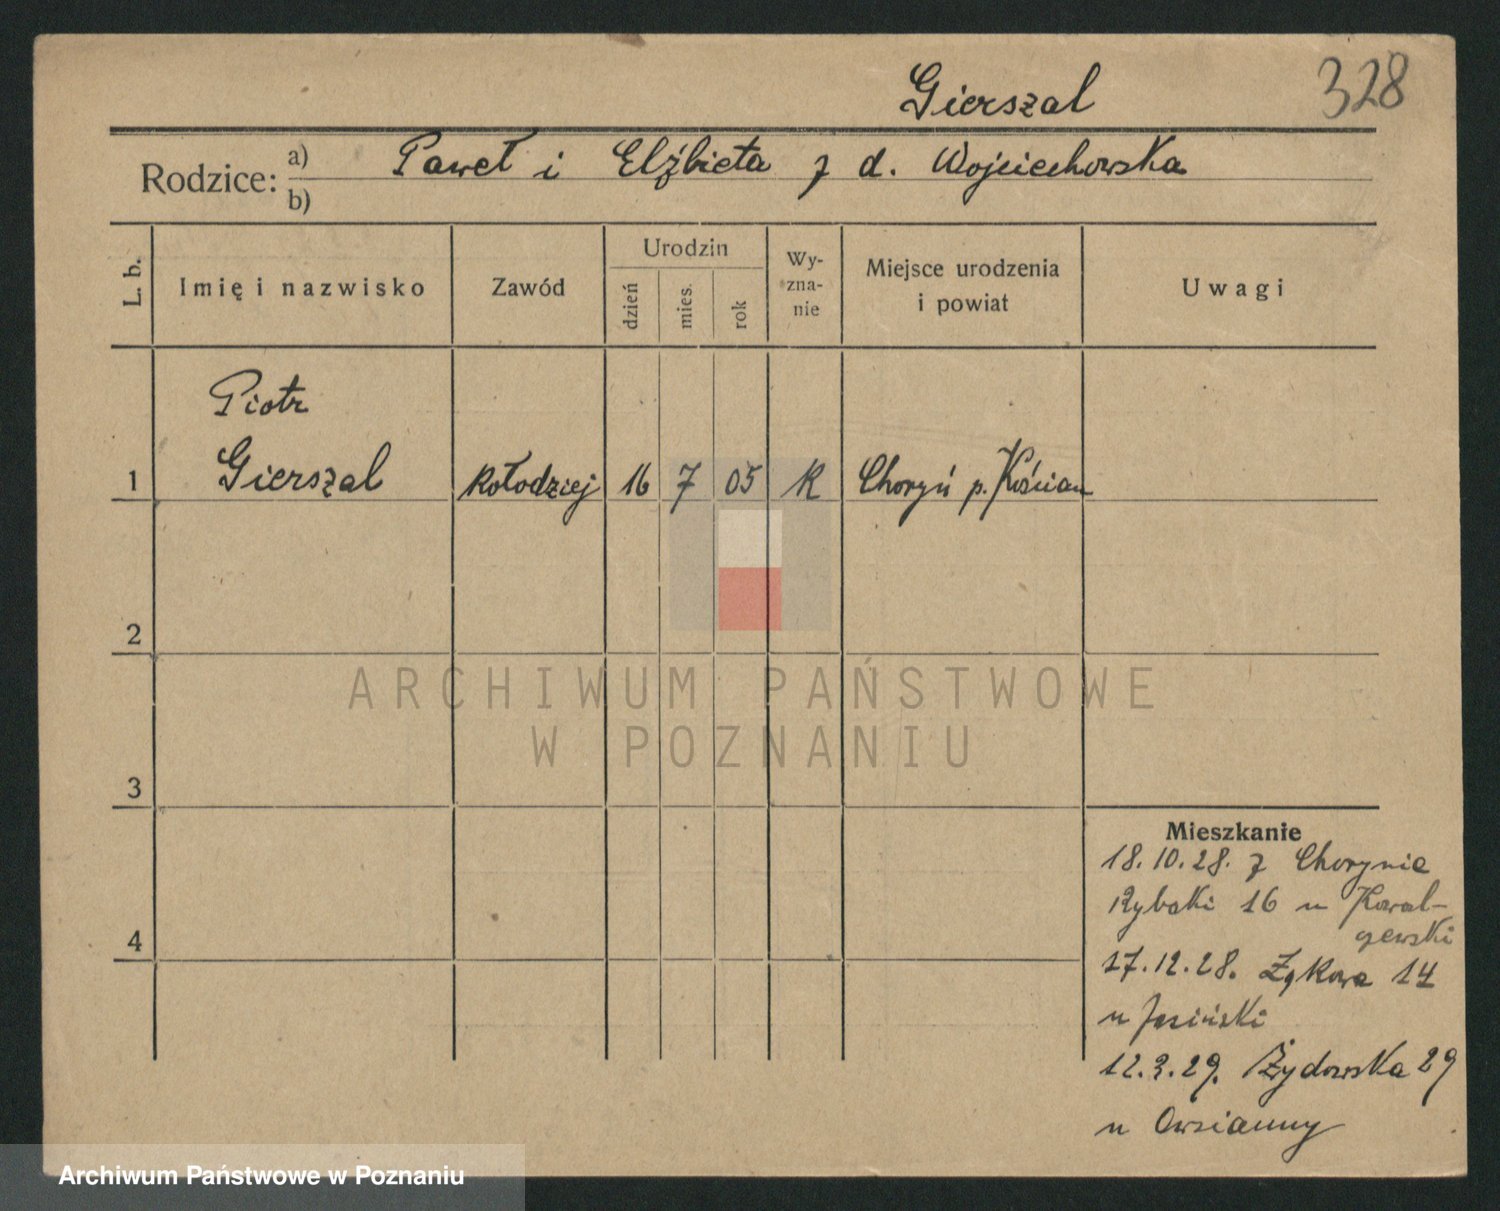 Gierszal 328
Rodzice: a) Paweł i Elżbieta z d. Wojciechowska
b)
L. b. Imię i nazwisko Zawód Urodzin dzień mies. rok Wyzna-nie Miejsce urodzenia i powiat Uwagi
Piotr
1 Gierszal Kołodziej 16 7 05 R Choryń p. Kościan
2
ARCHIWUM PAŃSTWOWE
W POZNANIU
3
4
Mieszkanie
18.10.28. z Chorynia
Rybaki 16 u Kowal-
czewski
17.12.28. Łąkowa 14
u Jasiński
12.3.29. Żydowska 29
u Owsianny
Archiwum Państwowe w Poznaniu